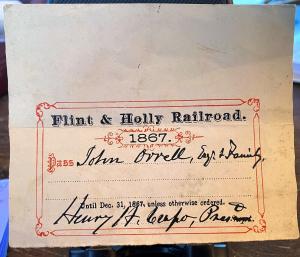 Flint & Holly Railroad.
1867.
Pass John Orrell, Esq. & Family,
Until Dec. 31, 1867, unless otherwise ordered.
Henry H. Crapo, Prest.